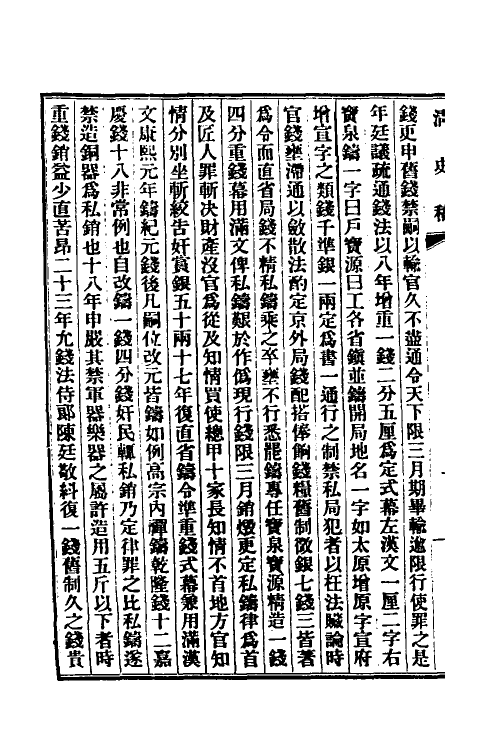 清史稿
錢更申舊錢禁嗣以輸官久不盡通令天下限三月期畢輸逾限行使罪之是
年廷議疏通錢法以八年增重一錢二分五厘爲定式幕左漢文一厘二字右
寶泉鑄一字曰戶寶源曰工各省鎭並鑄開局地名一字如太原增原字宣府
增宣字之類錢千準銀一兩定爲書一通行之制禁私局犯者以枉法贓論時
官錢壅滯通以斂散法酌定京外局錢配搭俸餉錢糧舊制徵銀七錢三皆著
爲令而直省局錢不精私鑄乘之卒壅不行悉罷鑄專任寶泉寶源精造一錢
四分重錢幕用滿文俾私鑄艱於作僞現行錢限三月銷燬更定私鑄律爲首
及匠人罪斬决財產沒官爲從及知情買使總甲十家長知情不首地方官知
情分別坐斬絞告奸賞銀五十兩十七年復直省鑄令準重錢式幕兼用滿漢
文康熙元年鑄紀元錢後凡嗣位改元皆鑄如例高宗內禪鑄乾隆錢十二嘉
慶錢十八非常例也自改鑄一錢四分錢奸民輒私銷乃定律罪之比私鑄遂
禁造銅器爲私銷也十八年申嚴其禁軍器樂器之屬許造用五斤以下者時
重錢銷益少直苦昂二十三年允錢法侍郞陳廷敬糾復一錢舊制久之錢貴